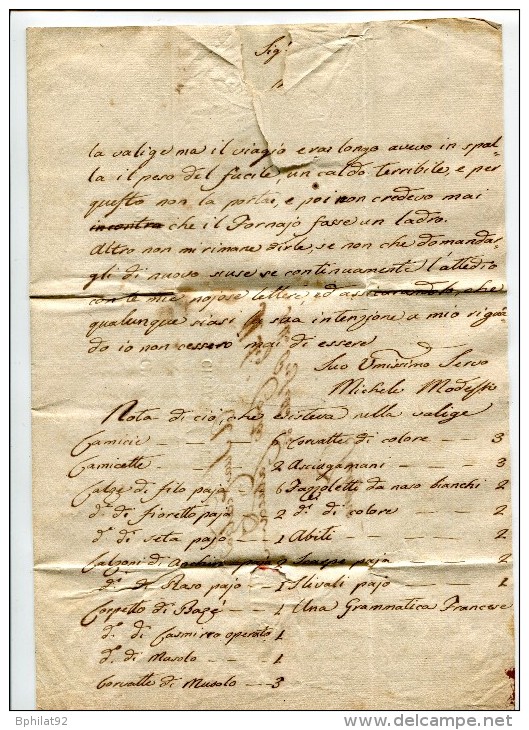 Sig.r
la valige ma il viagio era longo avevo in spal-
la il peso del fucile un caldo terribile, e per
questo non la portai, e poi non credevo mai
incontra che il Fornajo fasse un ladro.
Altro non mi rimane dirle, se non che domandar-
gli di nuovo scuse se continuamente l'attedio
con le mie nojose lettere, ed assicurandola, che
qualunque siasi la sua intenzione a mio rigua-
do io non cessero mai di essere
Suo Umissimo Servo
Michele Modesti
Nota di ciò, che esisteva nella valige
Camicie - - - 6 Corvatte di colore - - 3
Camicette - - - 2 Asciugamani - - - 3
Calze di filo paja - - 6 Fazzoletti da naso bianchi 2
d.e di fioretto paja 2 d.i di colore - - - 2
d.e di seta pajo - - 1 Abiti - - - 2
Calzoni di paja 2 Scarpe paja - - 2
d.i di Raso pajo - - 1 Stivali pajo - - 1
Corpetto di - 1 Una Grammatica Francese
d.o di Casmirro operato 1
d.o di Musolo - - - 1
Corvatte di Musolo - - 3
Bphilat92
www.delcampe.net